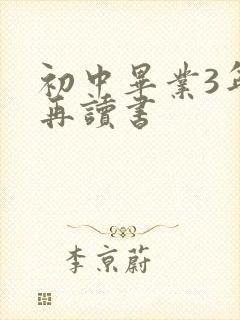 初中畢業3年
再讀書
李京蔚